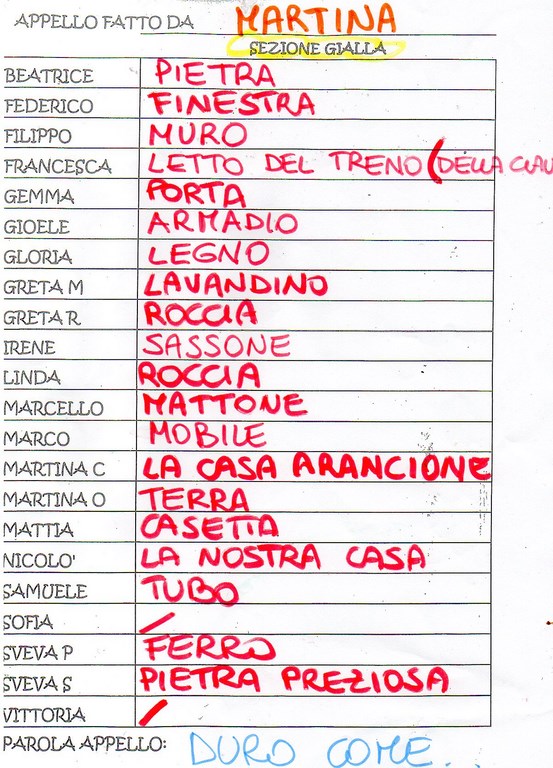 APPELLO FATTO DA MARTINA
SEZIONE GIALLA
BEATRICE PIETRA
FEDERICO FINESTRA
FILIPPO MURO
FRANCESCA LETTO DEL TRENO (DELLA CLAU
GEMMA PORTA
GIOELE ARMADIO
GLORIA LEGNO
GRETA M LAVANDINO
GRETA R ROCCIA
IRENE SASSONE
LINDA ROCCIA
MARCELLO MATTONE
MARCO MOBILE
MARTINA C LA CASA ARANCIONE
MARTINA O TERRA
MATTIA CASETTA
NICOLO' LA NOSTRA CASA
SAMUELE TUBO
SOFIA /
SVEVA P FERRO
SVEVA S PIETRA PREZIOSA
VITTORIA /
PAROLA APPELLO: DURO COME...